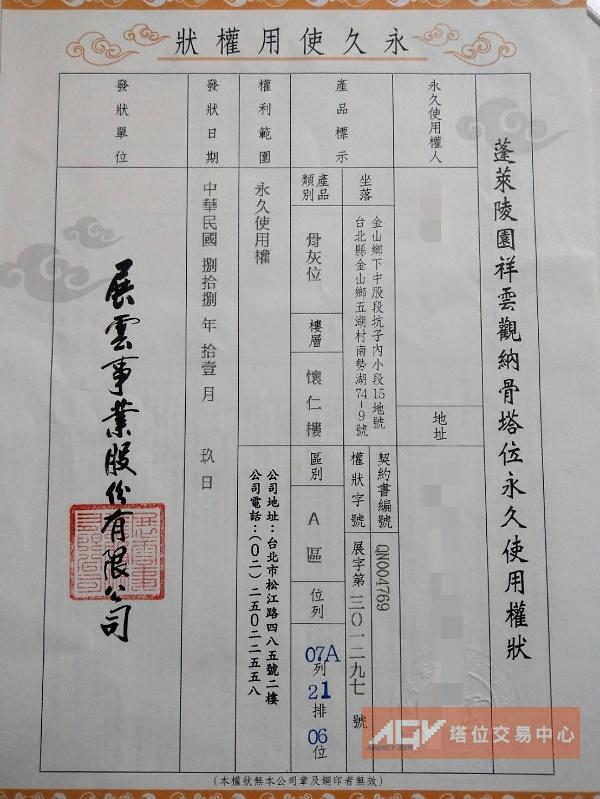 永久使用權狀
蓬萊陵園祥雲觀納骨塔位永久使用權狀
永久使用權人
地址
產品標示
坐落
金山鄉下中股段坑子內小段15地號
台北縣金山鄉五湖村南勢湖74-9號
契約書編號
QN004769
權狀字號
展字第三〇一二九七號
產品類別
骨灰位
樓層
懷仁樓
區別
A區
位列
07A列21排06位
權利範圍
永久使用權
公司地址：台北市松江路四八五號二樓
公司電話：(〇二)二五〇二二五五八
發狀日期
中華民國捌拾捌年拾壹月玖日
發狀單位
展雲事業股份有限公司
AGV 塔位交易中心
(本權狀無本公司章及鋼印者無效)